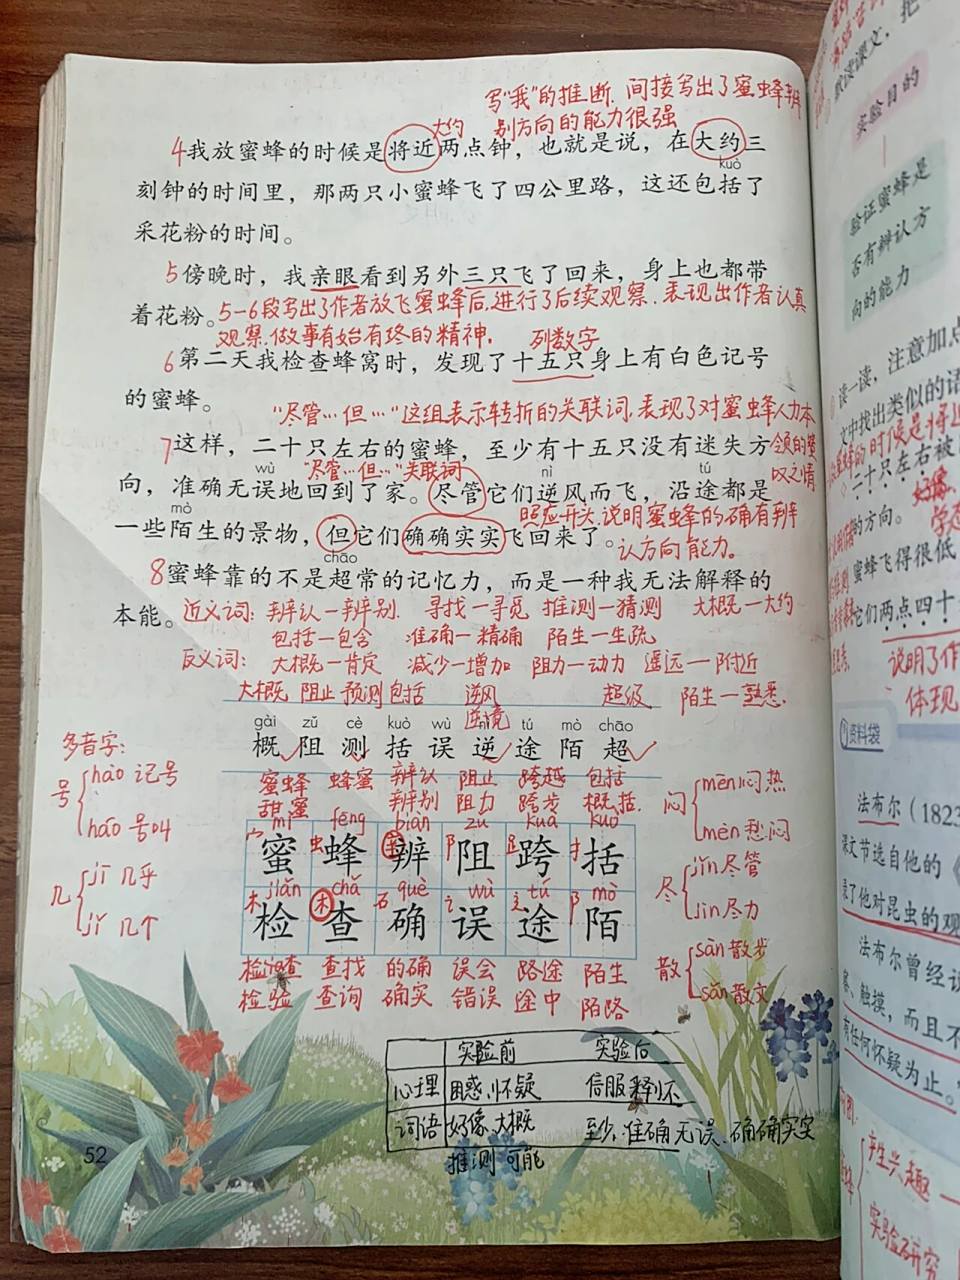 写"我"的推断.间接写出了蜜蜂辨
别方向的能力很强
大约
4我放蜜蜂的时候是将近两点钟，也就是说，在大约三
kuò
刻钟的时间里，那两只小蜜蜂飞了四公里路，这还包括了
采花粉的时间。
5傍晚时，我亲眼看到另外三只飞了回来，身上也都带
着花粉。5-6段写出了作者放飞蜜蜂后,进行了后续观察.表现出作者认真
观察.做事有始有终的精神.
列数字
6第二天我检查蜂窝时，发现了十五只身上有白色记号
的蜜蜂。
"尽管…但…"这组表示转折的关联词.表现了对蜜蜂
本
7这样，二十只左右的蜜蜂，至少有十五只没有迷失方
领的赞
叹之情
"尽管…但…"关联词
wù nì tú
向，准确无误地回到了家。尽管它们逆风而飞，沿途都是
照应开头.说明蜜蜂的确有辨
认方向能力。
mò
一些陌生的景物，但它们确确实实飞回来了。
chāo
8蜜蜂靠的不是超常的记忆力，而是一种我无法解释的
本能。
近义词: 辨认一辨别. 寻找一寻觅 推测一猜测 大概一大约
包括一包含 准确一精确 陌生一生疏
反义词: 大概一肯定 减少一增加 阻力一动力 遥远一附近
大概 阻止 预测 包括 逆风 超级 陌生一熟悉.
逆境
gài zǔ cè kuò wù nì tú mò chāo
概 阻 测 括 误 逆 途 陌 超
多音字:
号 hào 记号
háo 号叫
几 jī 几乎
jǐ 几个
蜜蜂 蜂蜜 辨认 阻止 跨越 包括
甜蜜 辨别 阻力 跨步 概括.
mì fēng biàn zǔ kuà kuò
宀 虫 辛 阝 𧾷 扌
蜜 蜂 辨 阻 跨 括
jiǎn chá què wù tú mò
木 木 石 讠 辶 阝
检 查 确 误 途 陌
检查 查找 的确 误会 路途 陌生
检验 查询 确实 错误 途中 陌路
闷 mēn 闷热
mèn 愁闷
尽 jǐn 尽管
jìn 尽力
散 sàn 散步
sǎn 散文
实验前 实验后
心理 困惑、怀疑 信服 释怀
词语 好像、大概 至少、准确无误、确确实实
推测 可能
52
默读课文，把
实验目的
验证蜜蜂是
否有辨认方
向的能力
读一读，注意加点
文中找出类似的语
的时候是将近
二十只左右被
好像
的方向。
蜜蜂飞得很低
它们两点四十
说明了作
体现
资料袋
法布尔（1823
课文节选自他的《
录了他对昆虫的观
法布尔曾经说
察、触摸，而且不
有任何怀疑为止。"
产生兴趣
实验研究